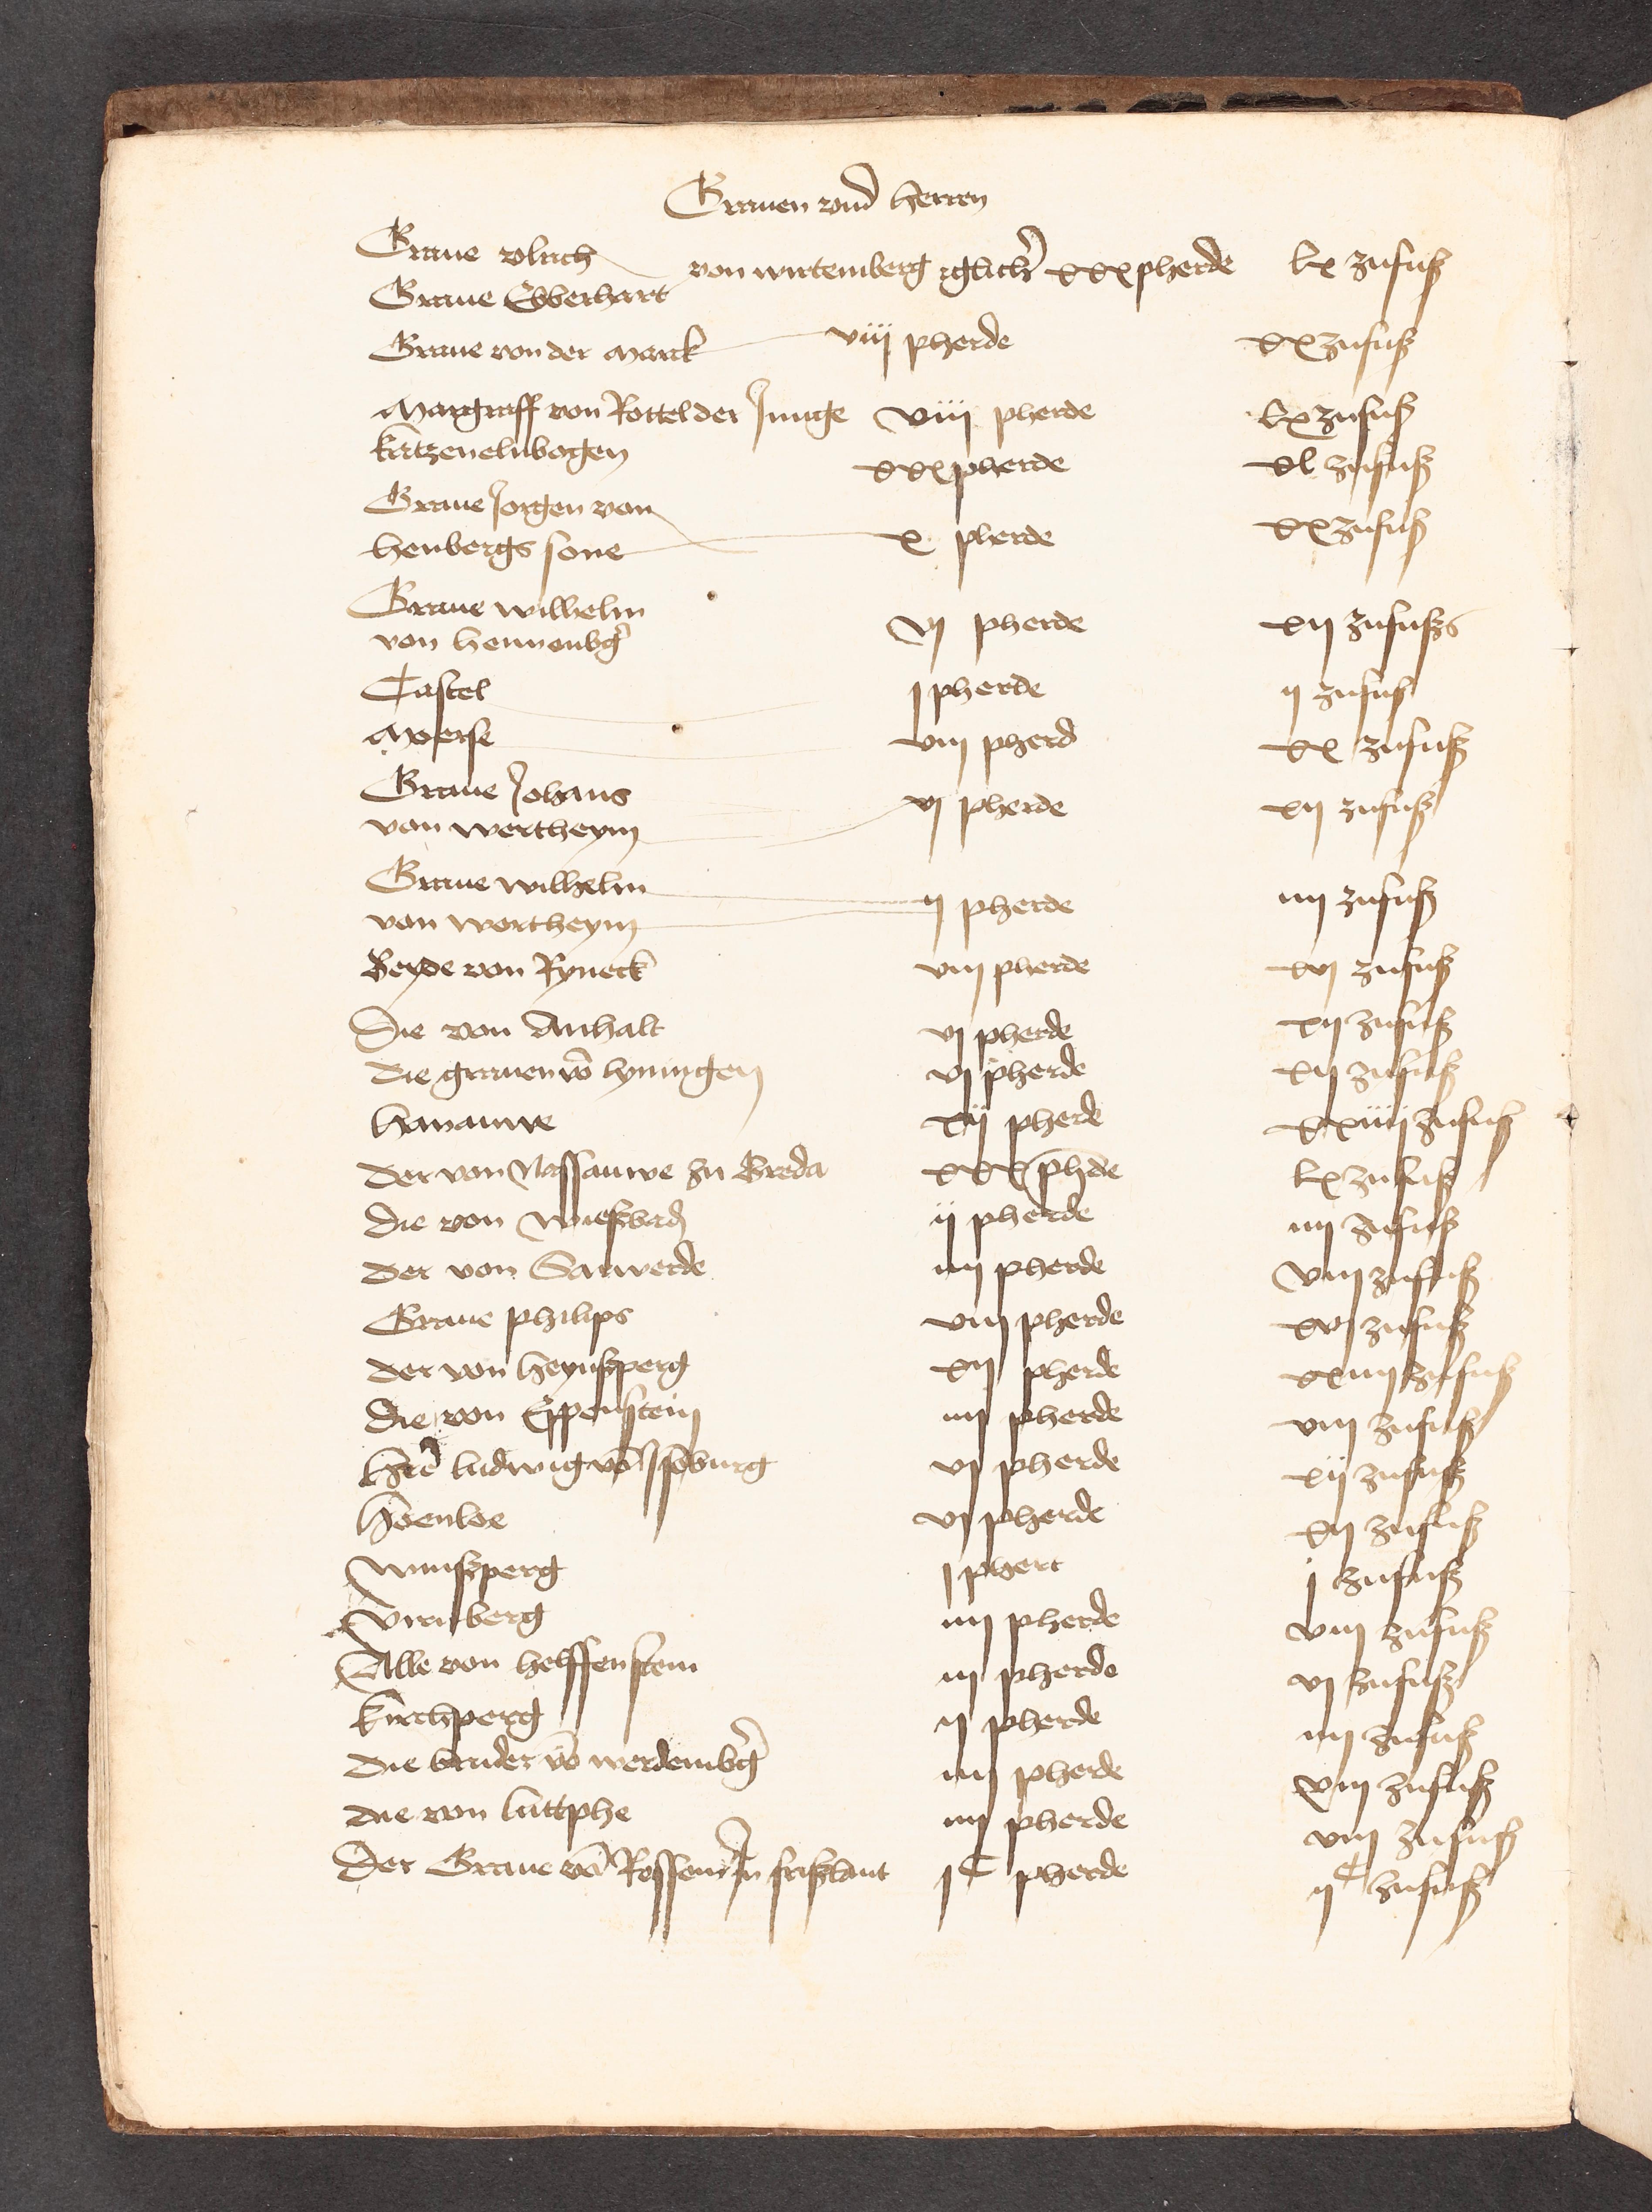 Grauen vnd herren
Graue vlrich
von wirtemberg iglich xxx pherde lx zufusz
Graue Ebberhart
Graue von der Marck viij pherde xx zufusz
Margraff von Rottel der Junge viij pherde lx zufusz
katzenelnbogen xxx pherde xl zufusz
Graue Jorgen von
henbergs sone x pherde xx zufusz
Graue wilhelm
von hennenbg vj pherde xij zufusz
Castel j pherde ij zufusz
Moerse viij pherd xx zufusz
Graue Johans
von wertheym vj pherde xij zufusz
Graue wilhelm
von wertheym ij pherde iiij zufusz
Beyde von Ryneck viij pherde xvj zufusz
Die von Anhalt vj pherde xij zufusz
die grauen vo lyningen vj pherde xij zufusz
hanauwe xij pherde xxiiij zufusz
der von Nassauwe zu Breda xxx phde lx zufusz
die von wieszbad ij pherde iiij zufusz
der von Sarwerde iiij pherde viij zufusz
Graue philips viij pherde xvj zufusz
der von heynszperg xij pherde xxiiij zufusz
die von Eppenstein iiij pherde viij zufusz
hre ludwig vo Isenburg vj pherde xij zufusz
hoenloe vj pherde xij zufusz
winszperg j phert j zufusz
virnberg iiij pherde viij zufusz
Alle von helffenstein iij pherde vj zufusz
kirchperg ij pherde iiij zufusz
die bruder vo werdembg iiij pherde viij zufusz
die von luttphe iiij pherde viij zufusz
Der Graue vo Rossem in friszlant jC pherde ijC zufusz